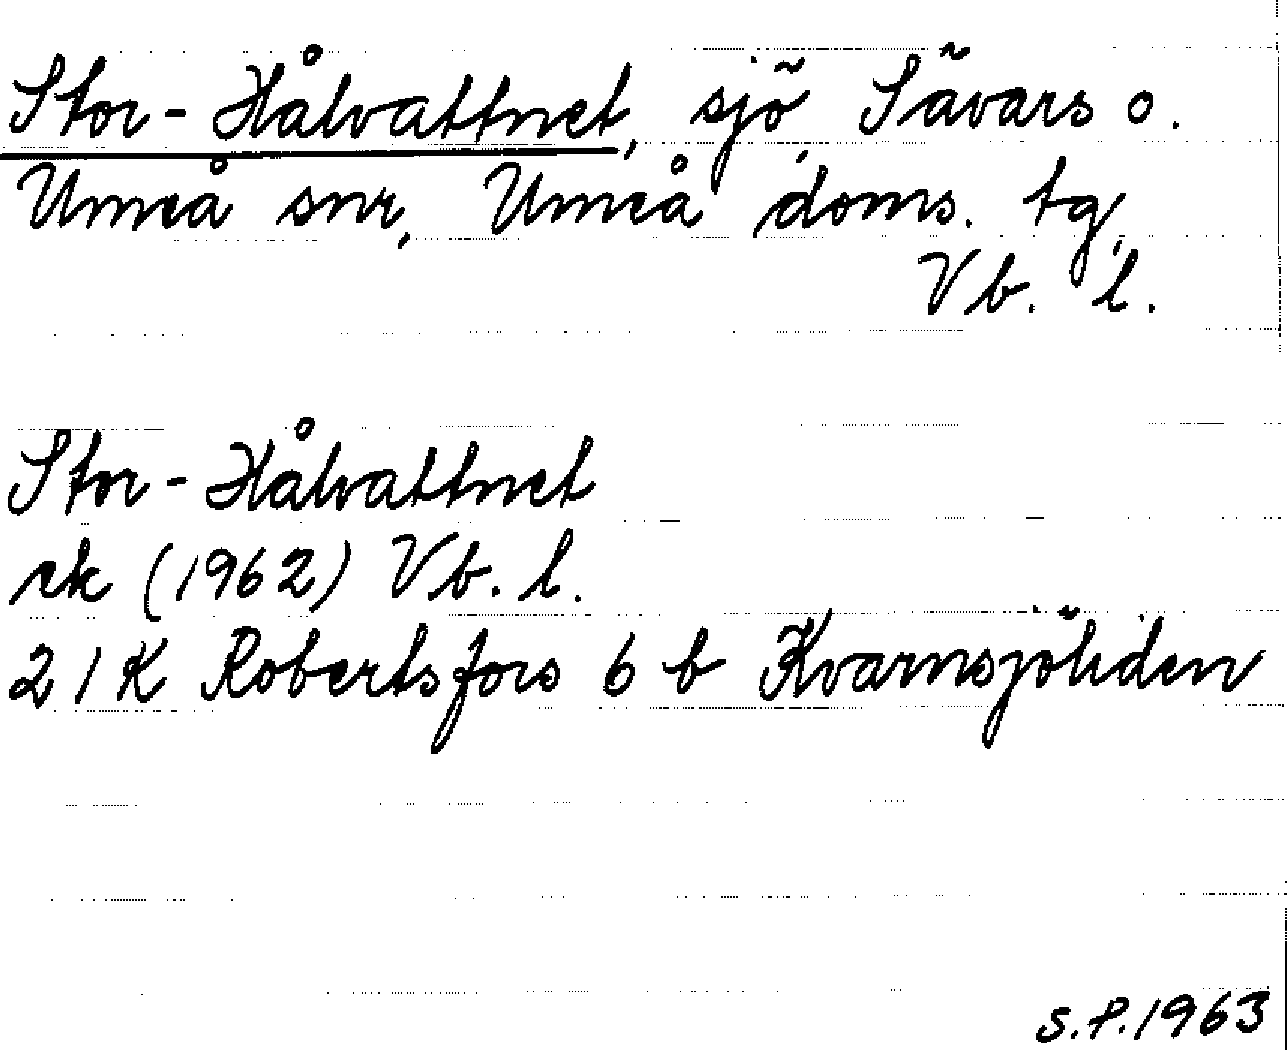 Stor-Hålvattnet, sjö, Sävars o.
Umeå snr, Umeå doms. tg,
Vb. l.
Stor-Hålvattnet
ek (1962) Vb. l.
21K Robertsfors 6 b Kvarnsjöliden
S.P. 1963